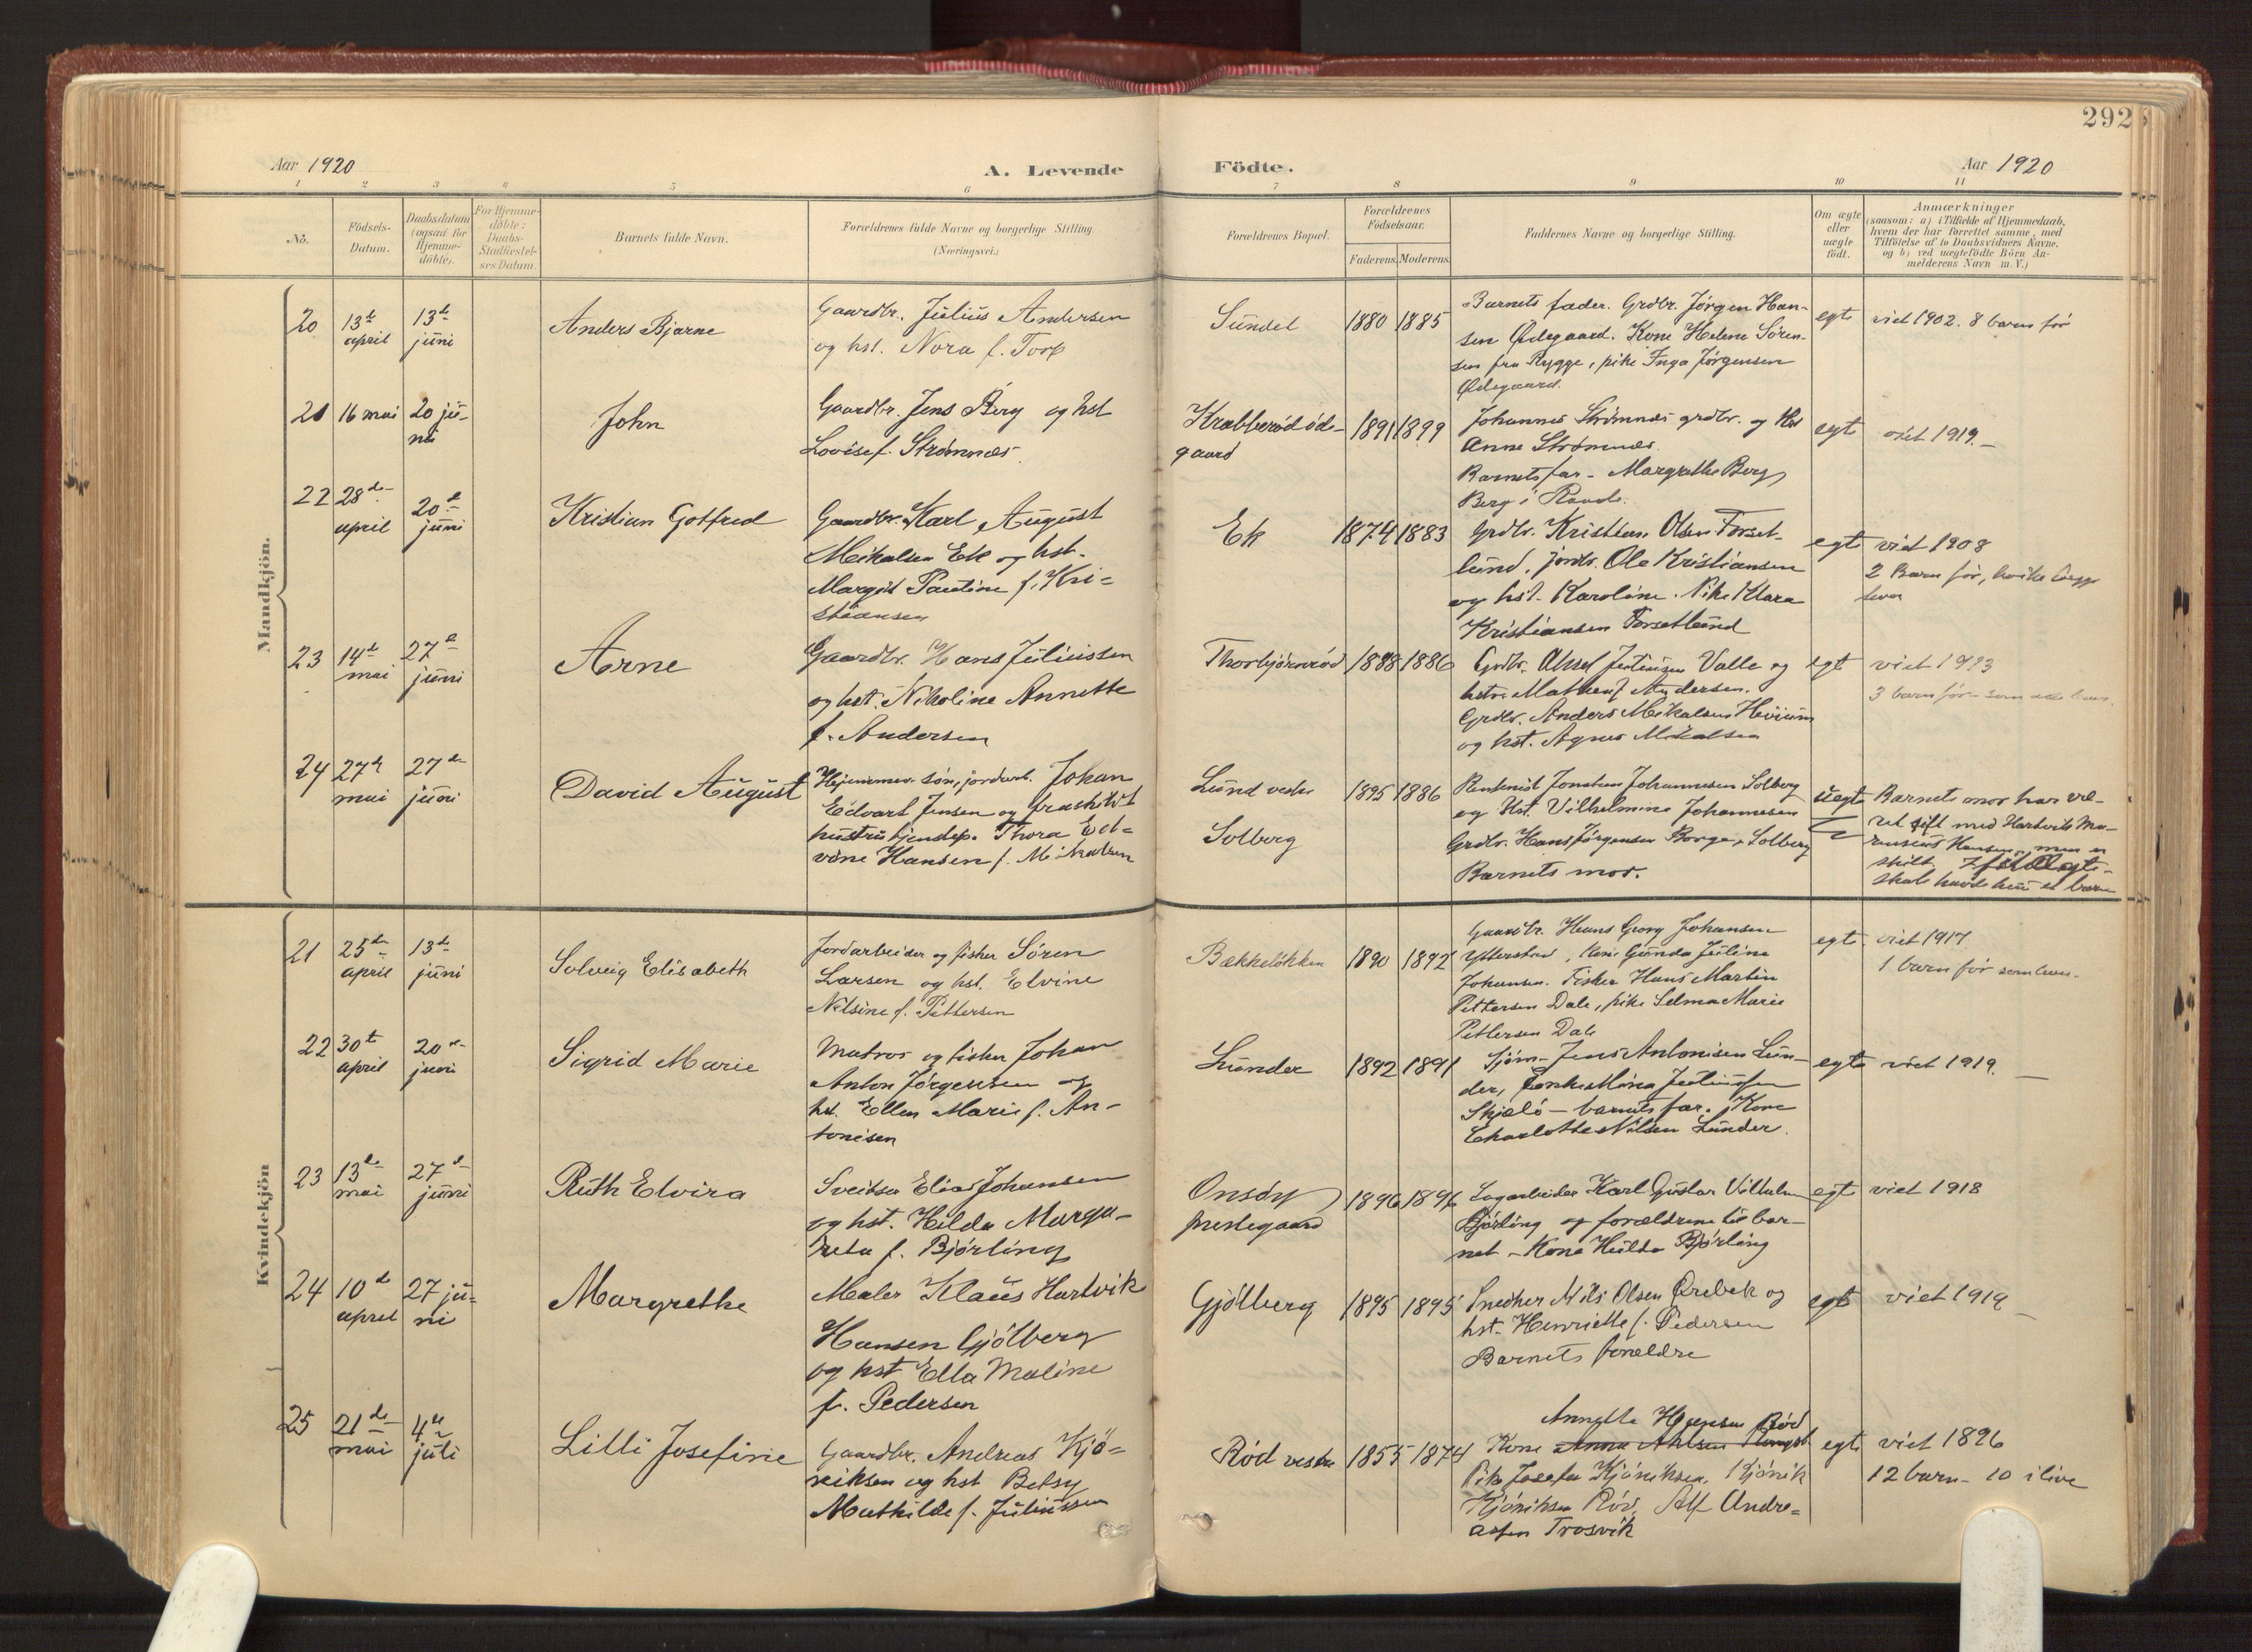 292
Aar 1920
A. Levende
Födte.
Aar 1920
1 2 3 4 5 6 7 8 9 10 11
No.
Födsels-
Datum.
Daabsdatum
(ogsaa for
Hjemme-
döbte).
For Hjemme-
döbte:
Daabs-
Stadfæstel-
ses Datum.
Barnets fulde Navn.
Forældrenes fulde Navne og borgerlige Stilling.
(Næringsvei.)
Forældrenes Bopæl.
Forældrenes
Födselsaar.
Faderens. Moderens.
Faddernes Navne og borgerlige Stilling.
Om ægte
eller
uægte
födt.
Anmærkninger
(saasom: a) i Tilfælde af Hjemmedaab,
hvem der har forrettet samme, med
Tilföielse af to Daabsvidners Navne.
og b) ved uægtefödte Börn An-
melderens Navn m. V.)
Mandkjön.
20
13de
april
13de
juni
Anders Bjarne
Gaardbr. Julius Andersen
og hst. Nora f. Torp
Sundet
1880 1885
Barnets fader. Grdbr. Jørgen Han-
sen Ødegaard. Kone Helene Søren-
sen fra Rygge, pike Inga Jørgensen
Ødegaard.
egte
viet 1902. 8 barn før
21
16 mai
20 ju-
ni
John
Gaardbr. Jens Berg og hst
Lovise f. Strømnæs
Krabberød øde-
gaard
1891 1899
Johannes Strømnæs grdbr. og Hst
Anne Strømnæs
Barnets far - Margrethe Berg
Berg i Raade.
egte
viet 1919. -
22
28de
april
20de
juni
Kristian Gotfred
Gaardbr. Karl August
Mikalsen Ek og hst.
Margit Pauline f. Kri-
stiansen
Ek
1874 1883
Grdbr. Kristian Olsen Torset-
lund. jordb. Ole Kristiansen
og hst. Karoline. Pike Klara
Kristiansen Torsetlund
egte
viet 1908
2 Barn før, hvilke begge
lever
23
14de
mai
27de
juni
Arne
Gaardbr. Hans Juliussen
og hst. Nikoline Annette
f. Andersen
Thorbjørnrød
1888 1886
Grdbr. Juliussen Valle og
f. Andersen.
Grdbr. Anders Mikalsen
og hst. Agnes Mikalsen
egt
viet 1913
3 barn før som alle lever.
24
27de
mai
27de
juni
David August
Hjemmev. søn, jordarb. Johan
Edvart Jensen og fraskilt
hustru tjenstep. Thora Ed-
vine Hansen f. Mikalsen
Lund vestre
Solberg
1895 1886
Rentenist Johannesen Solberg
og Hst. Vilhelmine Johannesen
Grdbr. Hans Jørgensen Borge, Solberg
Barnets mor.
uegte
Barnets mor har væ-
ret gift med Hartvik Ma-
Hansen, men er
skilt. I
skab havde hun et barn
Kvindekjön
21
25de
april
13de
juni
Solveig Elisabeth
Jordarbeider og fisker Søren
Larsen og hst. Elvine
Nilsine f. Pettersen
Bakkeløkken
1890 1892
Gaardbr. Hans Georg Johansen
Ytterstad, Kone Gunda Juline
Johansen. Fisker Hans Martin
Pettersen Dale, pike Selma Marie
Pettersen Dale
egte
viet 1917.
1 barn før som lever.
22
30te
april
20de
juni
Sigrid Marie
Matros og fisker Johan
Anton Jørgensen og
hst. Ellen Marie f. An-
tonisen
Lunder
1892 1891
Sjøm. Jens Antonisen Lun-
der, Enke Mina Juliussen
Skjælø - barnets far. Kone
Charlotte Nilsen Lunder.
egte
viet 1919. -
23
13de
mai
27de
juni
Ruth Elvira
Sveitser Elias Johansen
og hst. Hilda Marga-
reta f. Bjørling
Onsøy
prestegaard
1896 1896
Karl Gustav Vilhelm
Bjørling og forældrene til bar-
net - Kone Hulda Bjørling
egt
viet 1918
24
10de
april
27 ju-
ni
Margrethe
Maler Klaus Hartvik
Hansen Gjølberg
og hst Ella Maline
f. Pedersen
Gjølberg
1895 1895
Snedker Nils Olsen Ørebek og
hst. Henriette f. Pedersen
Barnets forældre
egte
viet 1919 -
25
21de
mai
4de
juli
Lilli Josefine
Gaardbr. Andreas Kjø-
niksen og hst Betsy
Mathilde f. Juliussen
Rød vestre
1855 1874
Annette Rød
Kone Anna
Pike Josefa Kjøniksen, Kjønik
Kjøniksen Rød, Alf Andre-
assen Trosvik
egte
viet 1896
12 barn - 10 i live